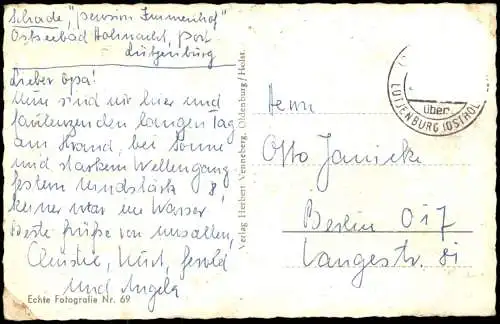 Schade, "Pension Immenhof"
Ostseebad Hohwacht, Post
Lütjenburg
Lieber Opa!
Nun sind wir hier und
faulenzen den langen Tag
am Strand, bei Sonne
und starkem Wellengang
gestern Windstärke 8,
keiner war im Wasser.
Beste Grüße von uns allen,
Christa, Kurt, Gerold
und Angela
Echte Fotografie Nr. 69
Verlag Herbert Venneberg, Oldenburg/Holst.
über
LÜTJENBURG (OSTHOL
Herrn
Otto Janicke
Berlin O 17
Langestr. 81